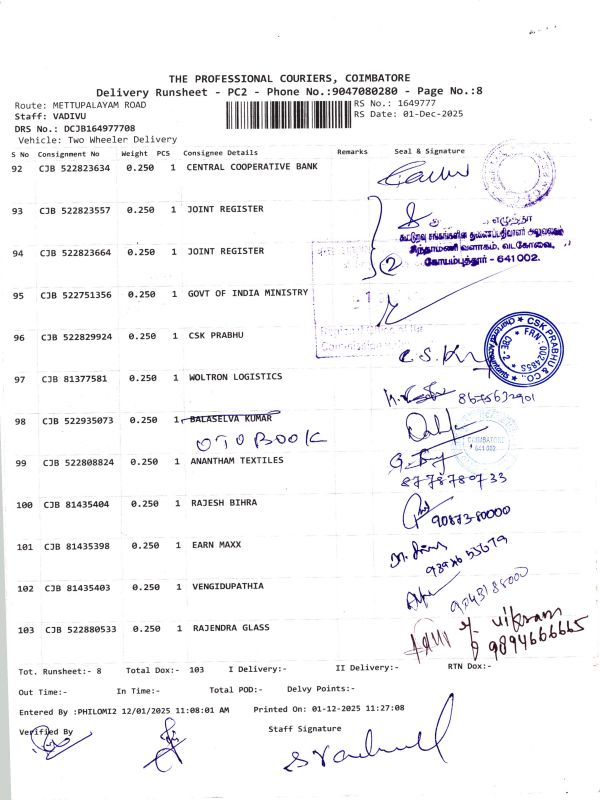 THE PROFESSIONAL COURIERS, COIMBATORE
Delivery Runsheet - PC2 - Phone No.:9047080280 - Page No.:8
Route: METTUPALAYAM ROAD RS No.: 1649777
Staff: VADIVU RS Date: 01-Dec-2025
DRS No.: DCJB164977708
Vehicle: Two Wheeler Delivery
S No Consignment No Weight PCS Consignee Details Remarks Seal & Signature
92 CJB 522823634 0.250 1 CENTRAL COOPERATIVE BANK
93 CJB 522823557 0.250 1 JOINT REGISTER
கூட்டுறவு சங்கங்களின் துணைப்பதிவாளர் அலுவலகம்
சிந்தாமணி வளாகம், வடகோவை,
கோயம்புத்தூர் - 641 002.
94 CJB 522823664 0.250 1 JOINT REGISTER
2
95 CJB 522751356 0.250 1 GOVT OF INDIA MINISTRY
Regional Office of the
96 CJB 522829924 0.250 1 CSK PRABHU
CSK PRABHU & CO.,
Chartered Accountants
FRN: 002485S
CBE-2
97 CJB 81377581 0.250 1 WOLTRON LOGISTICS
8675632901
98 CJB 522935073 0.250 1 BALASELVA KUMAR
OTO BOOK
COIMBATORE
641 002
99 CJB 522808824 0.250 1 ANANTHAM TEXTILES
8778780733
100 CJB 81435404 0.250 1 RAJESH BIHRA
90873-80000
101 CJB 81435398 0.250 1 EARN MAXX
102 CJB 81435403 0.250 1 VENGIDUPATHIA
103 CJB 522880533 0.250 1 RAJENDRA GLASS
vikram
9894666665
Tot. Runsheet:- 8 Total Dox:- 103 I Delivery:- II Delivery:- RTN Dox:-
Out Time:- In Time:- Total POD:- Delvy Points:-
Entered By :PHILOMI2 12/01/2025 11:08:01 AM Printed On: 01-12-2025 11:27:08
Verified By Staff Signature